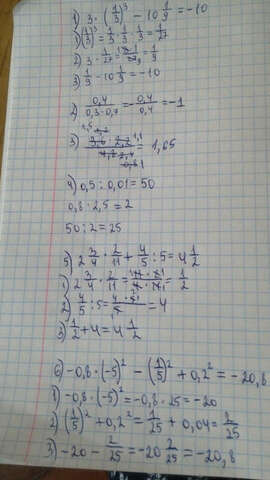 1) 3 · (1/3)³ - 10 1/9 = -10
1) (1/3)³ = 1/3 · 1/3 · 1/3 = 1/27
2) 3 · 1/27 = = 1/9
3) 1/9 - 10 1/9 = -10
2) 0,4 / 0,3-0,7 = - 0,4/0,4 = -1
3) = 1,65
4) 0,5 : 0,01 = 50
0,8 · 2,5 = 2
50 : 2 = 25
5) 2 3/4 · 2/11 + 4/5 : 5 = 4 1/2
1) 2 3/4 · 2/11 = = 1/2
2) 4/5 : 5 = = 4
3) 1/2 + 4 = 4 1/2
6) -0,8 · (-5)² - (1/5)² + 0,2² = -20,8
1) -0,8 · (-5)² = -0,8 · 25 = -20
2) (1/5)² + 0,2² = 1/25 + 0,04 = 2/25
3) -20 - 2/25 = -20 2/25 = -20,8